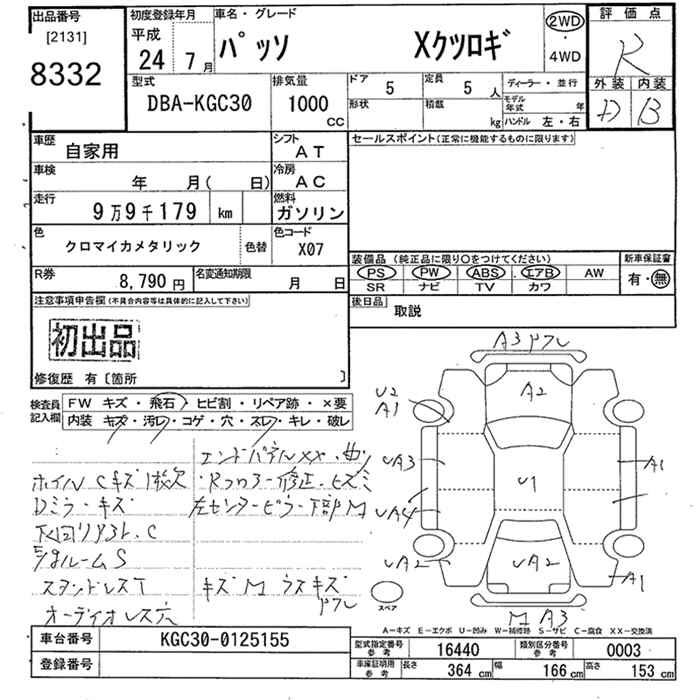 出品番号
[2131]
8332
初度登録年月
平成
24 7月
車名・グレード
パッソ Xクツロギ
2WD
・
4WD
評価点
R
外装 内装
D B
型式
DBA-KGC30
排気量
1000
cc
ドア 5
定員 5 人
形状
積載 kg
ディーラー・並行
モデル年式 年
ハンドル 左・右
車歴
自家用
シフト
AT
車検
年 月( 日)
冷房
AC
走行
9万9千179 km
燃料
ガソリン
色
クロマイカメタリック
色替
色コード
X07
R券
8,790円
名変通知期限
月 日
セールスポイント(正常に機能するものに限ります)
装備品(純正品に限り○をつけてください)
PS PW ABS エアB AW
SR ナビ TV カワ
新車保証書
有・無
後日品
取説
注意事項申告欄(不具合内容等は具体的に記入して下さい)
初出品
修復歴 有〔箇所 〕
検査員
記入欄
FW キズ・飛石・ヒビ割・リペア跡・×要
内装 キズ・汚レ・コゲ・穴・スレ・キレ・破レ
エンドパネルXX・曲リ
ホイルCキズ1枚欠
・Rフロアー修正・ヒズミ
Dミラーキズ
左センターピラー下部M
下回りサビ.C
Eンジンルーム S
スタッドレスT
キズM ウスキズ
オーディオレス穴
A3
A2
U2
A1
UA3
UA4
U1
A1
UA2
UA2
A1
M A3
スペア
A-キズ E-エクボ U-凹み W-補修跡 S-サビ C-腐食 XX-交換済
車台番号
KGC30-0125155
登録番号
型式指定番号
参考
16440
類別区分番号
参考
0003
車庫証明用
参考
長さ 364 cm
幅 166 cm
高さ 153 cm